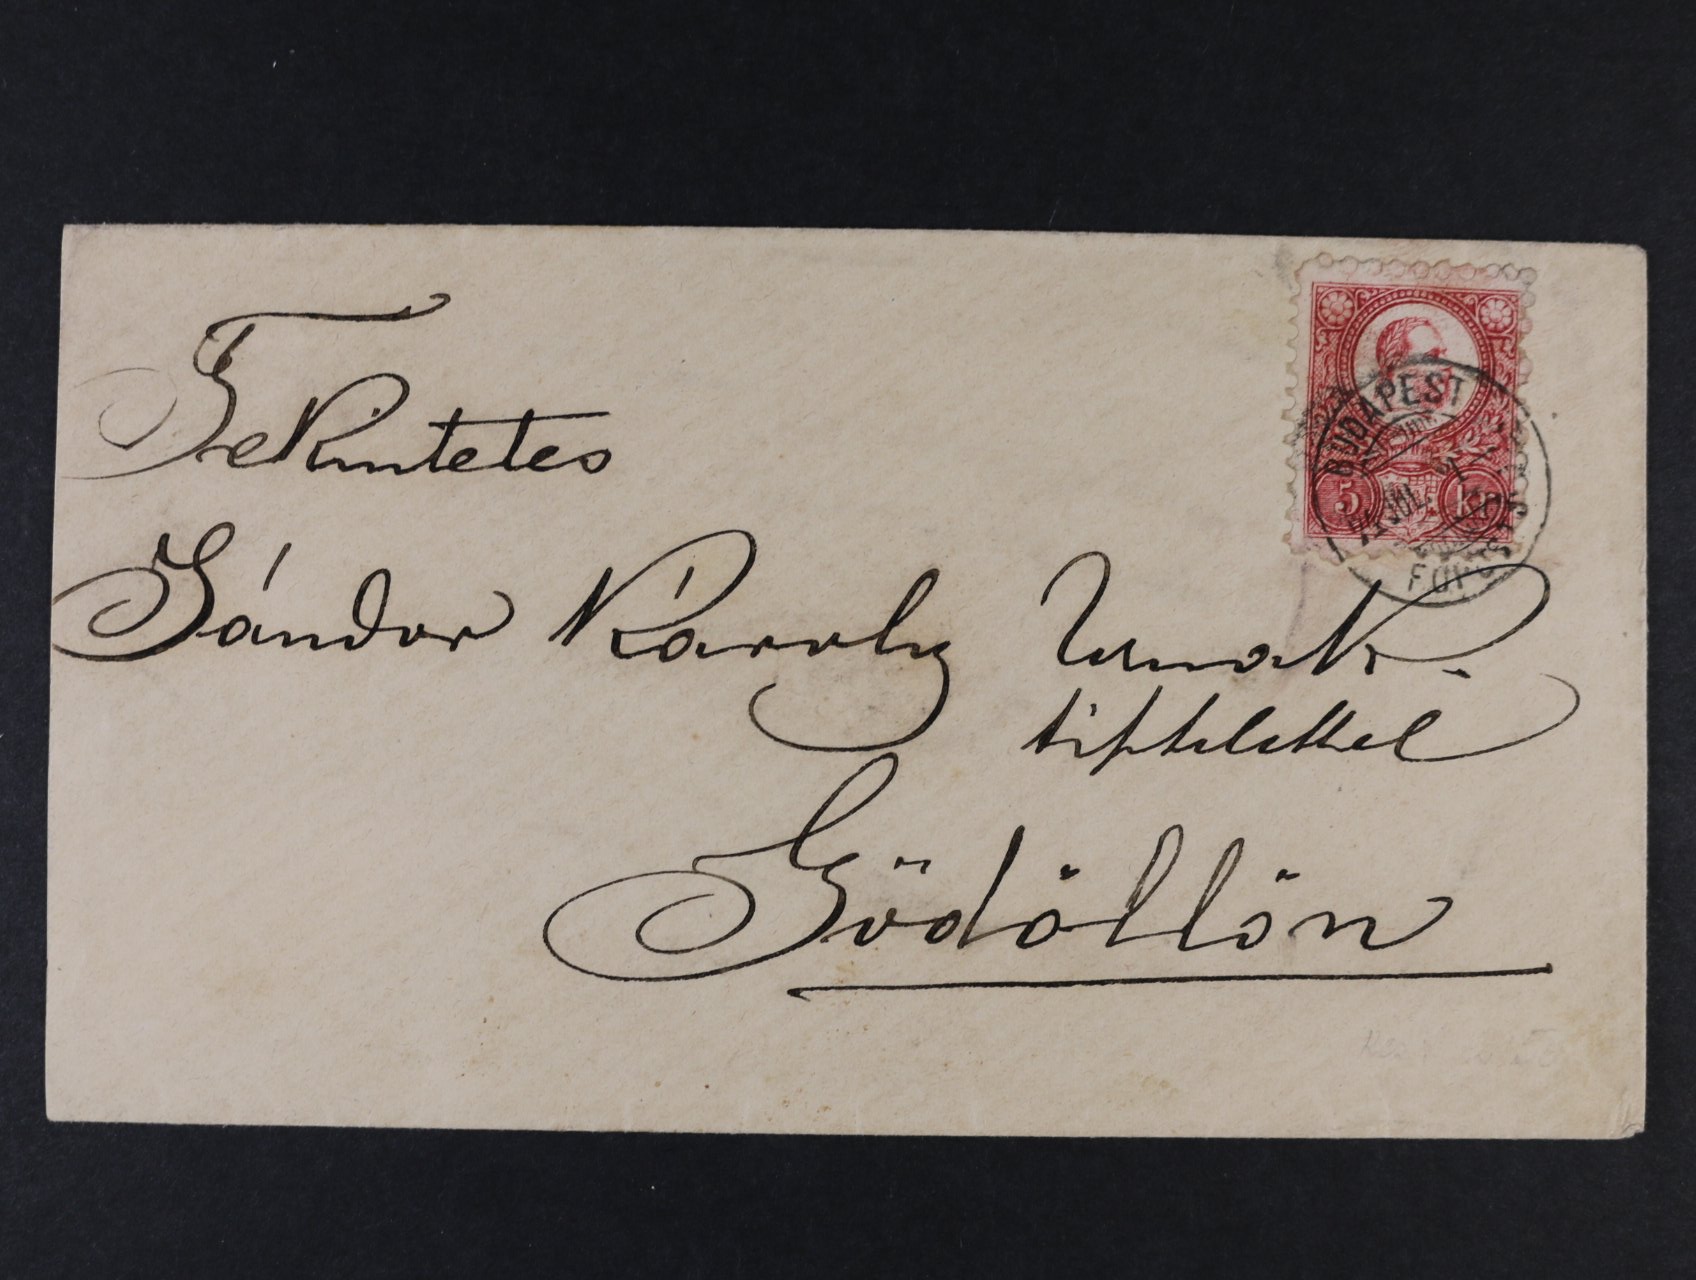 Tekintetes
Sándor Károly Urnak.
tisztelettel
Gödöllőn
5 kr
BUDAPEST
JUL. 31